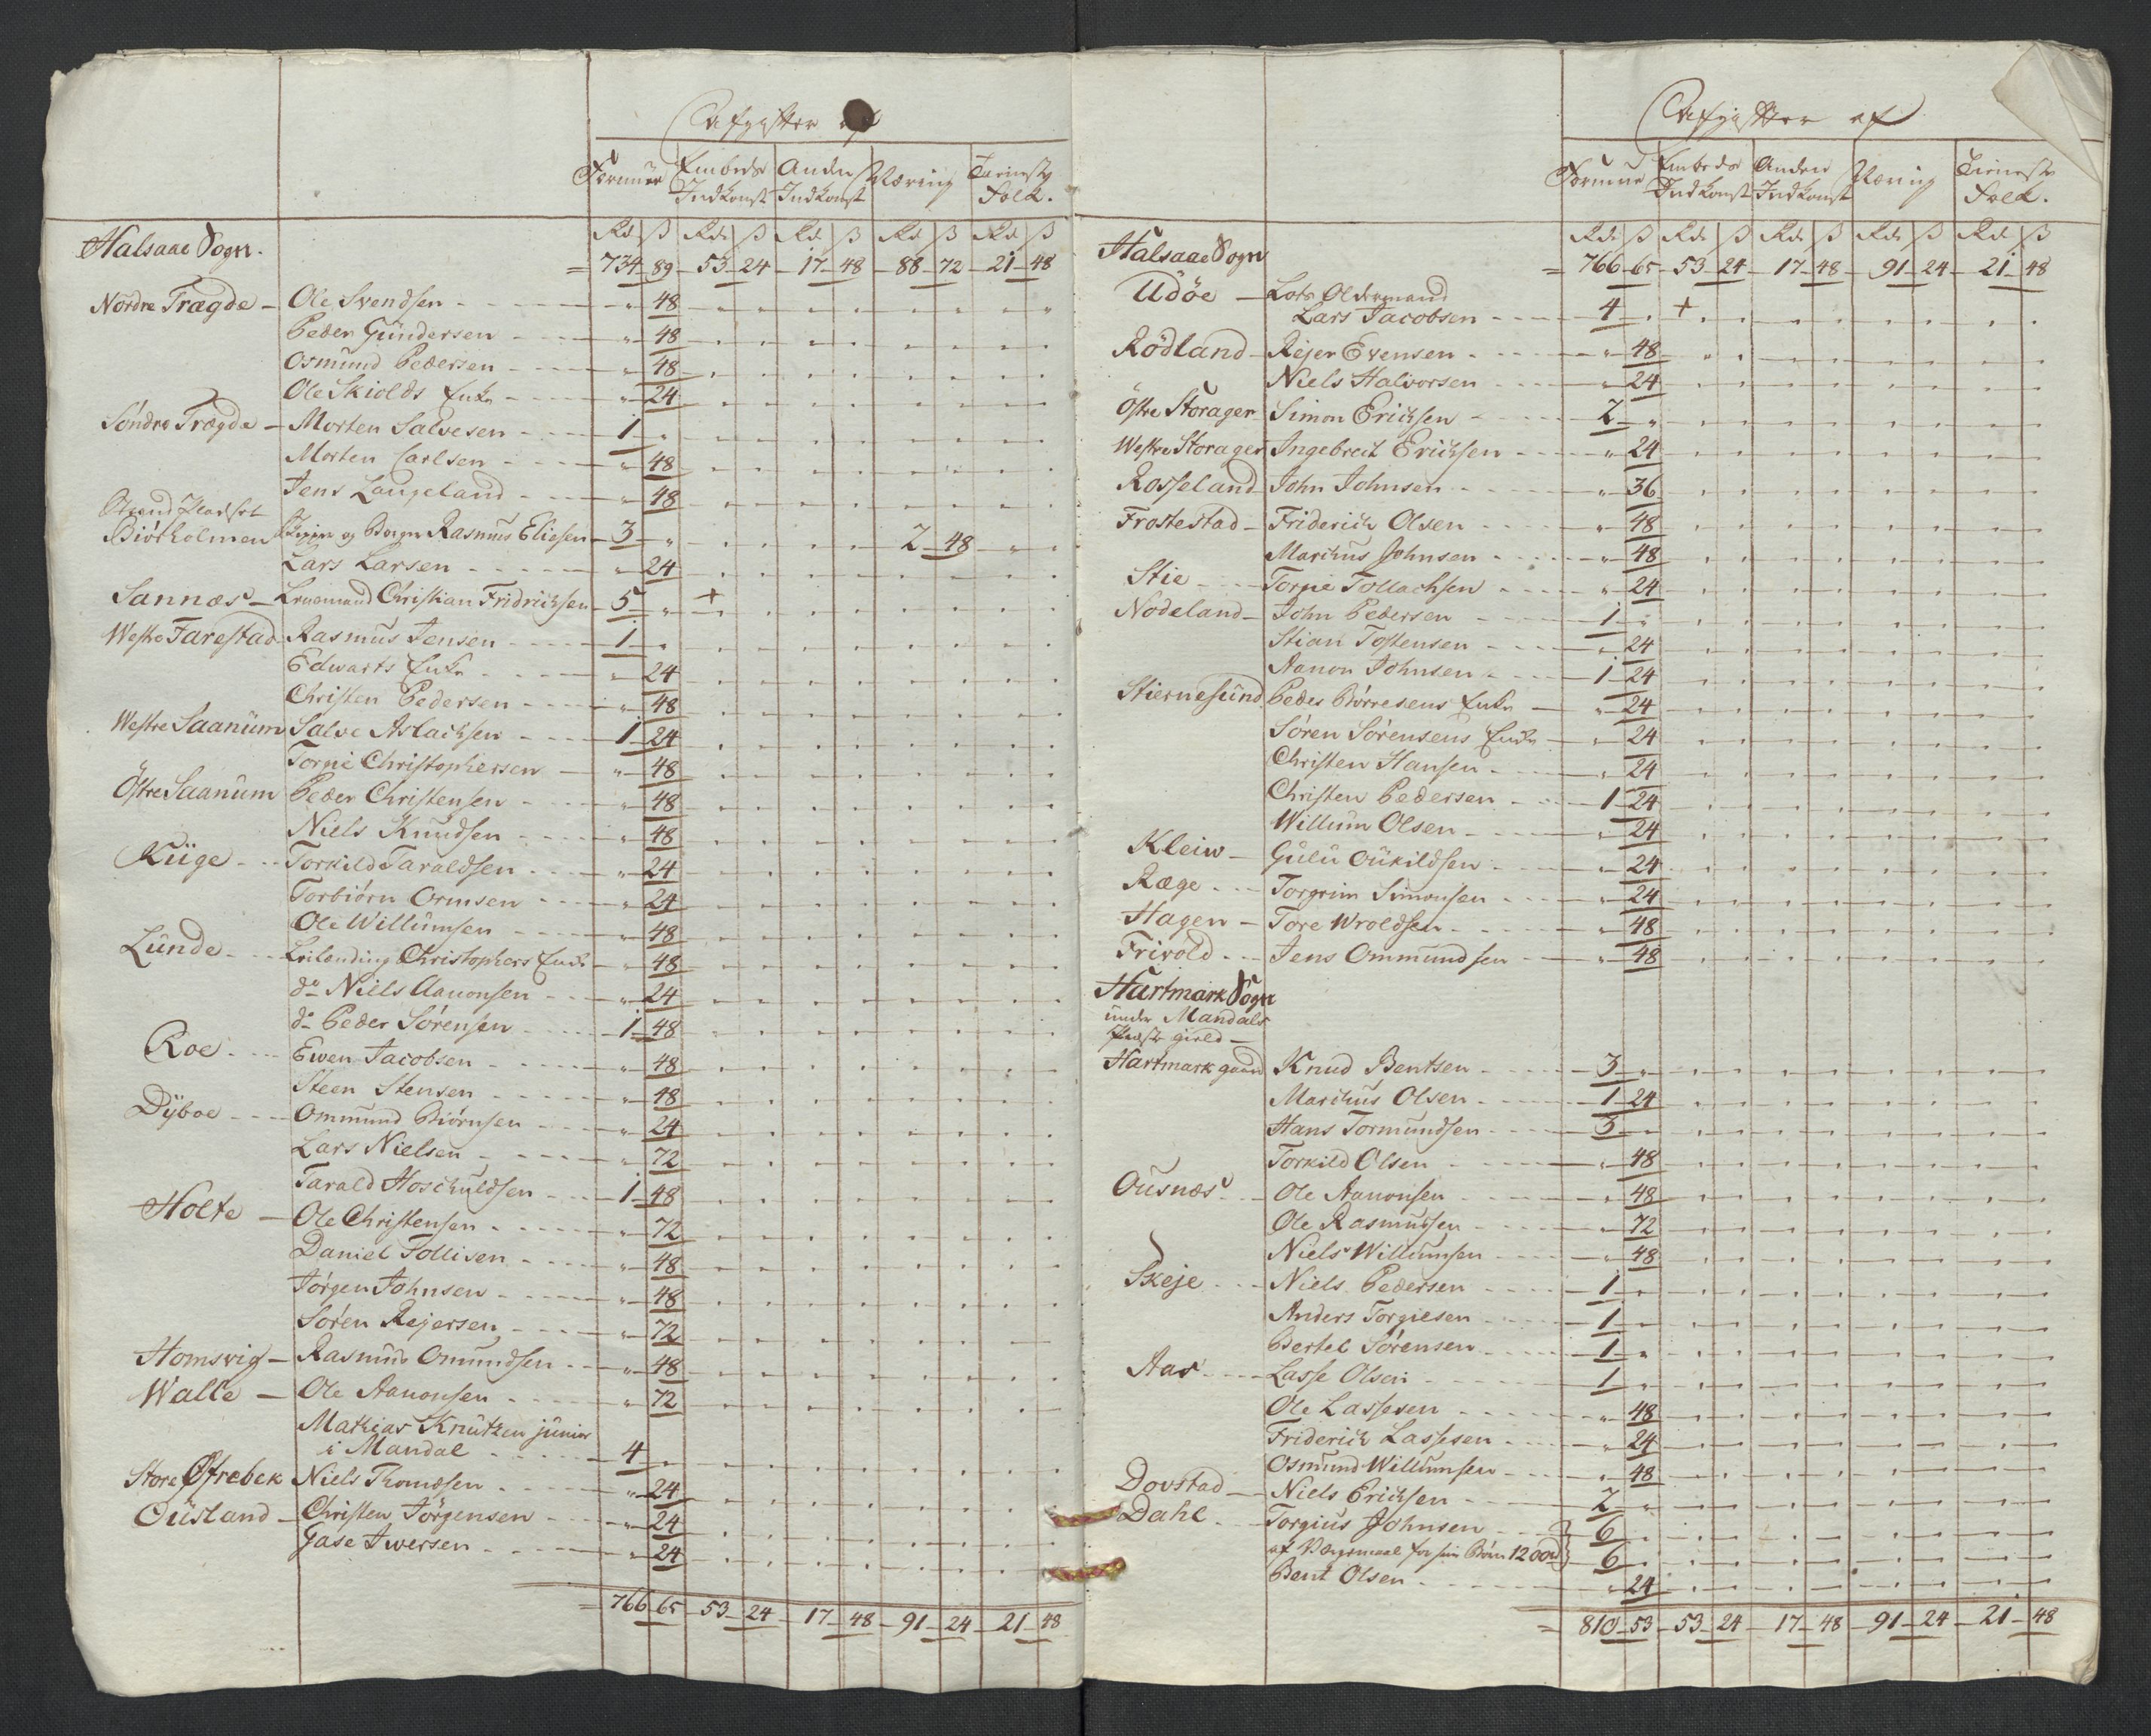 Afgifter af
Formue Embeds Indkomst Anden Indkomst Næring Tieneste Folk.
Halsaae Sogn.
Rdr ß Rdr ß Rdr ß Rdr ß Rdr ß
= 734 89 53 24 17 48 88 72 21 48
Nordre Trægde - Ole Svendsen - " 48
Peder Gundersen - " 48
Osmund Pedersen - " 48
Ole Skiolds Enke - " 24
Søndre Trægde - Morten Salvesen - 1 "
Morten Carlsen - " 48
Jens Langeland - " 48
Strand Pladset
Biørholmen Skipper og Borger Rasmus Eliesen - 3 " 2 48
Lars Larsen - " 24
Sannæs - Lensmand Christian Fridrichsen - 5 " +
Westre Farestad Rasmus Jensen - 1 "
Edwarts Enke - " 24
Christen Pedersen - " 48
Westre Saanum Salve Aslachsen - 1 24
Torgie Christophersen - " 48
Östre Saanum Peder Christensen - " 48
Niels Knudsen - " 48
Küge - Torkild Taraldsen - " 24
Torbiørn Ormsen - " 24
Ole Willumsen - " 48
Lunde - Leilending Christophers Enke - " 48
do Niels Aanonsen - " 24
do Peder Sørensen - 1 48
Roe - Ewen Jacobsen - " 48
Steen Stensen - " 48
Dÿboe - Ommund Biørnsen - " 24
Lars Nielsen - " 72
Tarald Hoschuldsen - 1 48
Holte - Ole Christensen - " 72
Daniel Tollisen - " 48
Jørgen Johnsen - " 48
Søren Rejersen - " 72
Homsvig - Rasmus Omundsen - " 48
Walle - Ole Aanonsen - " 72
Mathias Knutzen junior
i Mandal - 4 "
Store Øfrebek Niels Thomdsen - " 24
Ousland - Christen Jörgensen - " 24
Gase Iwersen - " 24
= 766 65 53 24 17 48 91 24 21 48
Afgifter af
Formue Embeds Indkomst Anden Indkomst Næring Tieneste Folk.
Rdr ß Rdr ß Rdr ß Rdr ß Rdr ß
Halsaae Sogn
= 766 65 53 24 17 48 91 24 21 48
Udöe - Lots Oldermand
Lars Jacobsen - 4 " +
Rödland - Rejer Evensen - " 48
Niels Halvorsen - " 24
Östre Storager Simon Erichsen - 2 "
Westre Storager Ingebret Erichsen - " 24
Rosseland John Johnsen - " 36
Frostestad - Friderich Olsen - " 48
Marchus Johnsen - " 48
Stie - Torgie Tollachsen - " 24
Nodeland - John Pedersen - 1 "
Stian Tostensen - " 24
Aanon Johnsen - 1 24
Stiernesund Peder Børresens Enke - " 24
Søren Sørensens Enke - " 24
Christen Hansen - " 24
Christen Pedersen - 1 24
Willum Olsen - " 24
Kleiw - Gulu Oukildsen - " 24
Ræge - Torgrim Simonsen - " 24
Hagen - Tore Wroldsen - " 48
Frivold - Jens Ommundsen - " 48
Hartmark Sogn
under Mandals
Præste gield -
Hartmark gaard Knud Bentsen - 3 "
Marchus Olsen - 1 24
Hans Tormundsen - 3 "
Torkild Olsen - " 48
Ousnæs - Ole Aanonsen - " 48
Ole Rasmussen - " 72
Niels Willumsen - " 48
Skeje - Niels Pedersen - 1 "
Anders Torgiesen - 1 "
Bertel Sørensen - 1 "
Aas - Lasse Olsen - 1 "
Ole Lassesen - " 48
Friderich Lassesen - " 24
Osmund Willumsen - " 48
Dovstad - Niels Erichsen - 2 "
Dahl - Torgius Johnsen - 6 "
af Værgemaal for sine Børn 1200rd 6 "
Bent Olsen - " 24
= 810 53 53 24 17 48 91 24 21 48